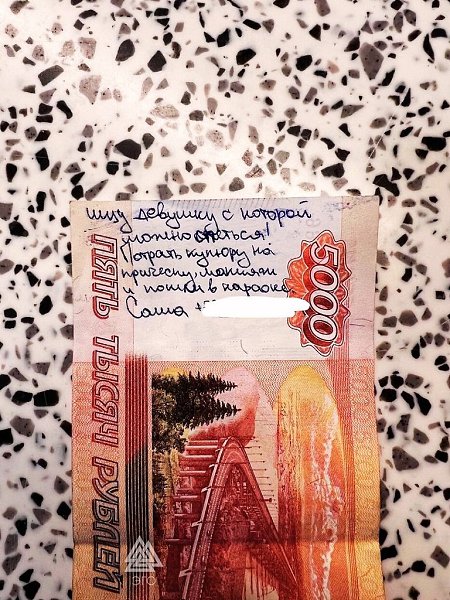 ищу девушку с которой
можно спеться!
Потрать купюру на
прическу, макияж
и пошли в караоке
Саша +7
5000
ПЯТЬ ТЫСЯЧ РУБЛЕЙ
pro